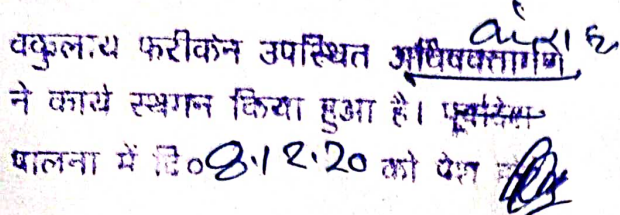 वकुलाय फरीकेन उपस्थित अधिवक्तागणों
ने कार्य स्थगन किया हुआ है।
पालना में दि० 8.12.20 को पेश हो